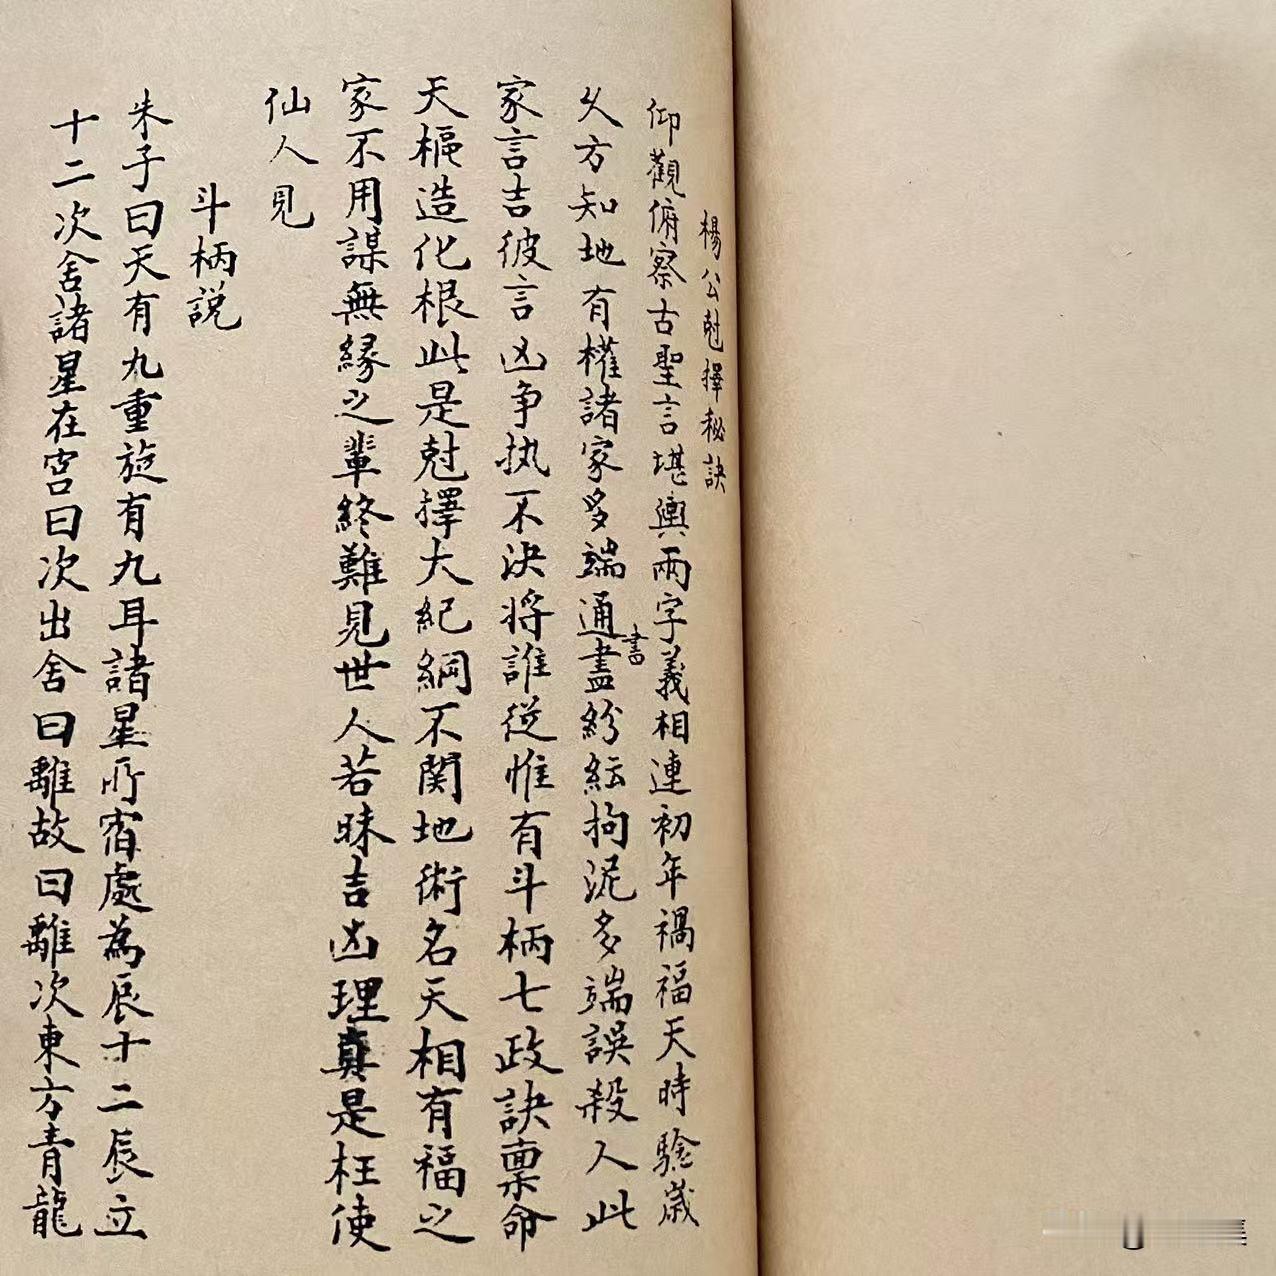 楊公尅擇秘訣
仰觀俯察古聖言堪輿兩字義相連初年禍福天時驗歲
久方知地有權諸家多端通書盡紛紜拘泥多端誤殺人此
家言吉彼言凶爭执不決将誰從惟有斗柄七政訣禀命
天樞造化根此是尅擇大紀綱不関地術名天相有福之
家不用謀無緣之輩終難見世人若昧吉凶理真是枉使
仙人見
斗柄説
朱子曰天有九重旋有九耳諸星所宿處為辰十二辰立
十二次舍諸星在宮曰次出舍曰離故曰離次東方青龍